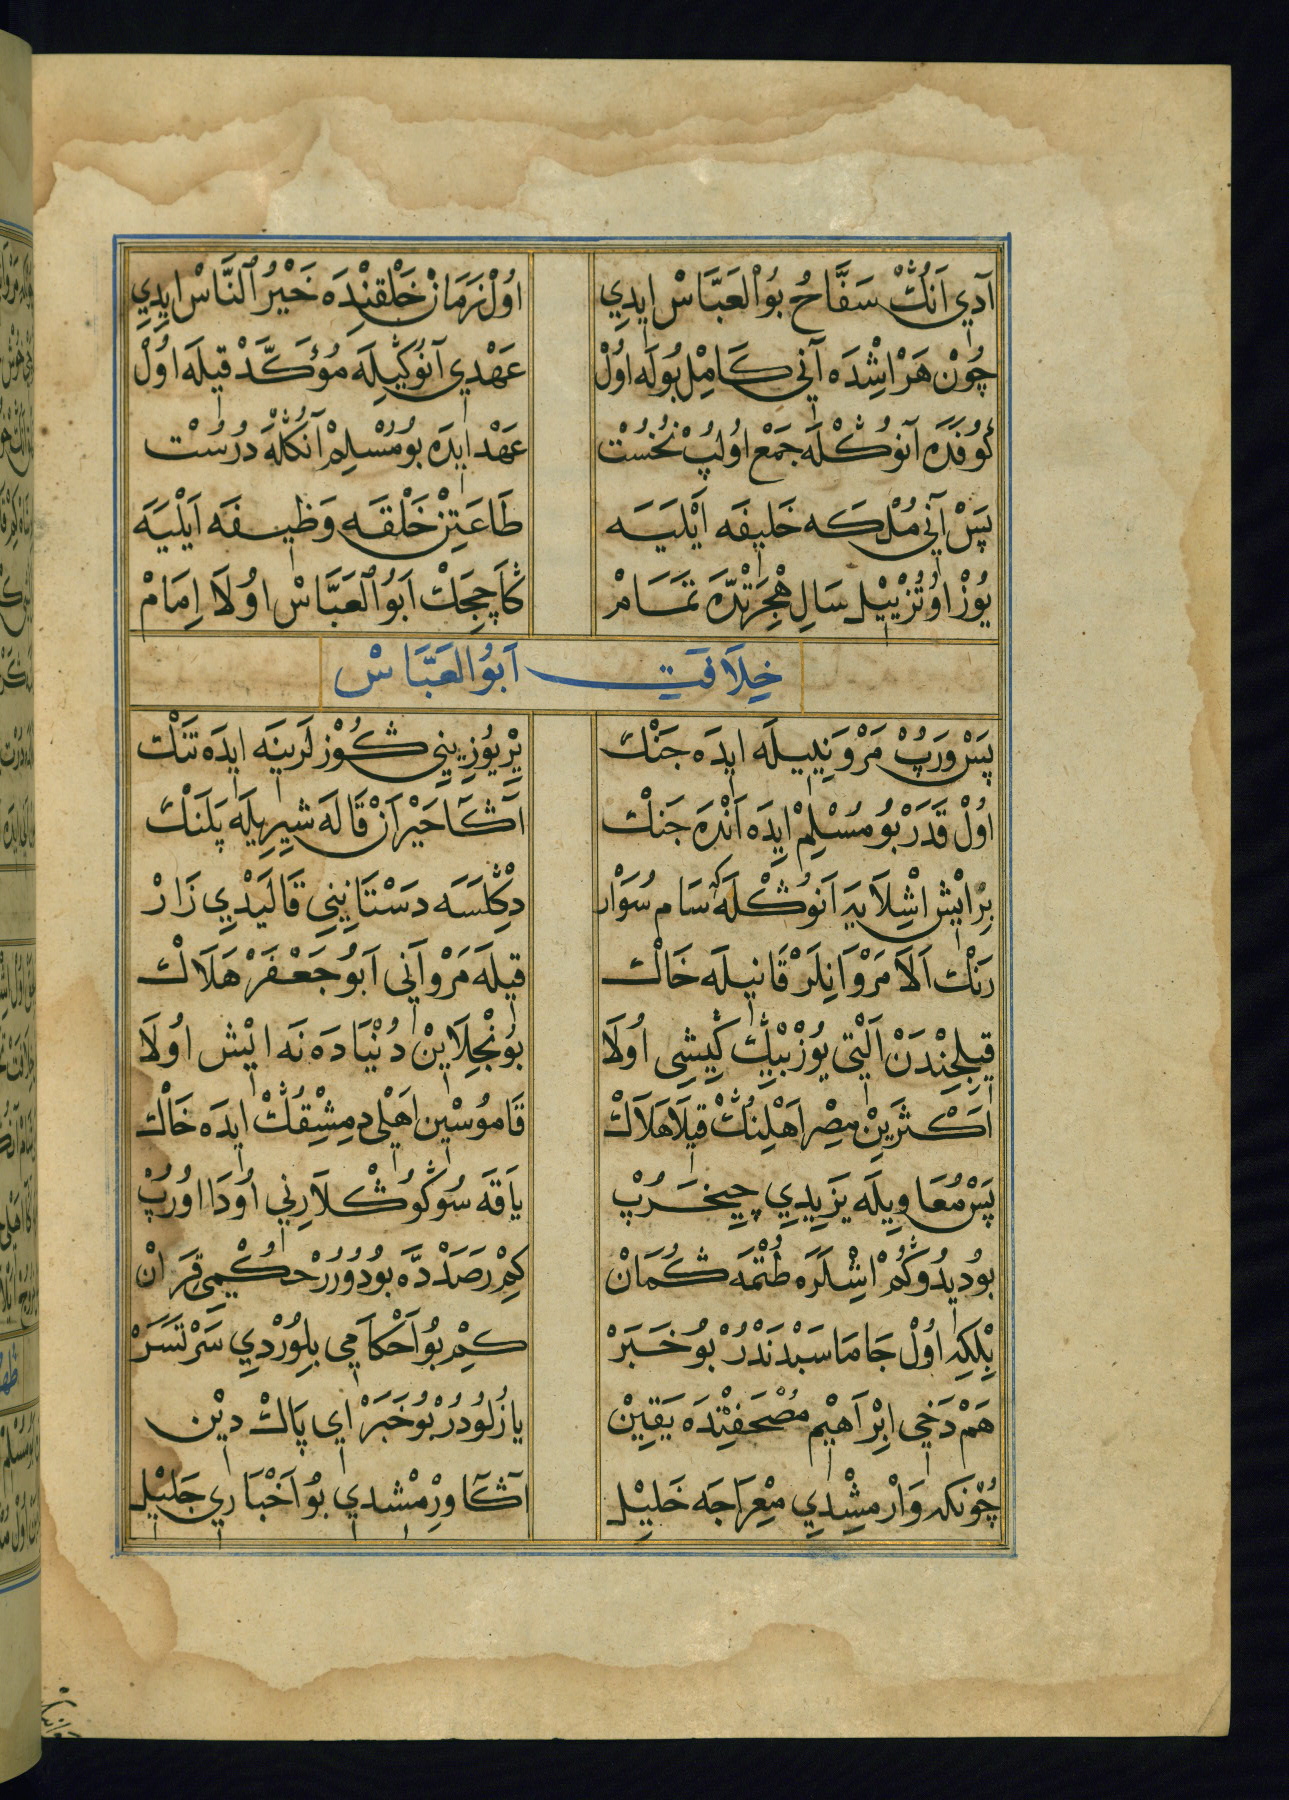 آدِي اَنُڭْ سَفَّاحُ بُو الْعَبَّاسْ اِيدِي اُولْ زَمَانْ خَلْقِنْدَه خَيْرُ النَّاسْ اِيدِي
چُونْ هَرْ اِشْدَه آنِي كَامِلْ بُولَه اُولْ عَهْدِي آنُوڭِيلَه مُؤَكَّدْ قِيلَه اُولْ
كُوفَدَه آنُوڭْلَه جَمْع اُولُپْ نُخُسْتْ عَهْد اِيدَه بُو مُسْلِمْ آنُڭْلَه دُرُسْتْ
پَسْ آنِي مُلْكَه خَلِيفَه اَيْلَيَه طَاعَتِنْ خَلْقَه وَظِيفَه اَيْلَيَه
يُوزْ اُوتُزْ يِيلْ سَالِ هِجْرَتْدَه تَمَامْ كَاچِجَكْ اَبُو الْعَبَّاسْ اُولَا اِمَامْ
خِلَافَتِ اَبُو الْعَبَّاسْ
پَسْ وَرُپْ مَرْوَنِييلَه اِيدَه جَنْكْ يِرْ يُوزِينِي كُوزْلَرِينَه اِيدَه تَنْكْ
اُولْ قَدَرْ بُو مُسْلِمْ اِيدَه اَنْدَه جَنْكْ آڭَا حَيْرَانْ قَالَه شِيرِيلَه پَلَنْكْ
بِرْ اِيشْ اِشْلَايَه اَنُوڭْلَه كَه سَام سُوَارْ دِڭْلَسَه دَسْتَانِينِي قَالَيْدِي زَارْ
رَنْكْ اَلَا مَرْوَانِلَرْ قَانِيلَه خَاكْ قِيلَه مَرْوَانِي اَبُو جَعْفَرْ هَلَاكْ
قِيلِجِنْدَنْ اَلْتِي يُوزْ بِيڭْ كِيشِي اُولَا بُونْجِلَايِنْ دُنْيَادَه نَه اِيشْ اُولَا
اَكْثَرِينْ مِصْر اَهْلِنُڭْ قِيلَا هَلَاكْ قَامُوسْيِن اَهْلِي دِمِشْقُڭْ اِيدَه خَاكْ
پَسْ مُعَاوِيلَه يَزِيدِي چِيخَرُپْ يَاقَه سُوڭُوكْلَارِنِي اُودَا اُورُپْ
بُو دِيدُوكُمْ اِشْلَرَه طُتْمَه كُمَانْ كِمْ رَصَدْدَه بُودُورُرْ حُكْمِي قِرَانْ
بِلْكِه اُولْ جَامَاسَبْدَنْدُرْ بُو خَبَرْ كِمْ بُو اَحْكَامِي بِلُورْدِي سَرْتَسَرْ
هَمْ دَخِي اِبْرَاهِيمْ مُصْحَفِنْدَه يَقِينْ يَازُلُودُرْ بُو خَبَرْ اَي پَاكْ دِينْ
چُونْكَه وَارْمِشْدِي مِعْرَاجَه خَلِيلْ آڭَا وِرْمِشْدِي بُو اَخْبَارِي جَلِيلْ